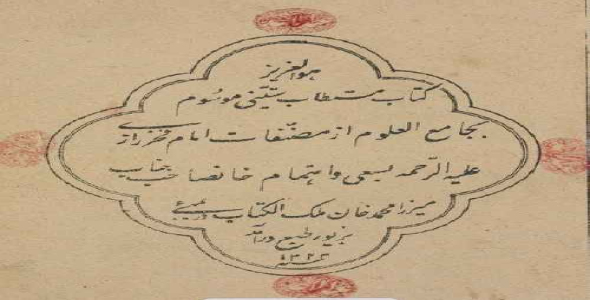 هوالعزیز
کتاب مستطاب ستینی موسوم
بجامع العلوم از مصنفات امام فخررازی
علیه الرحمه بسعی واهتمام خانصاحب جناب
میرزا محمد خان ملک الکتاب در بمبئی
بزیور طبع درآمد
۱۳۲۳